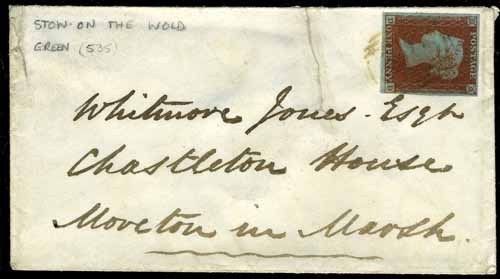 STOW-ON THE WOLD
GREEN (535)
POSTAGE
ONE PENNY
Whitmore Jones Esqr
Chastleton House
Moreton in Marsh.